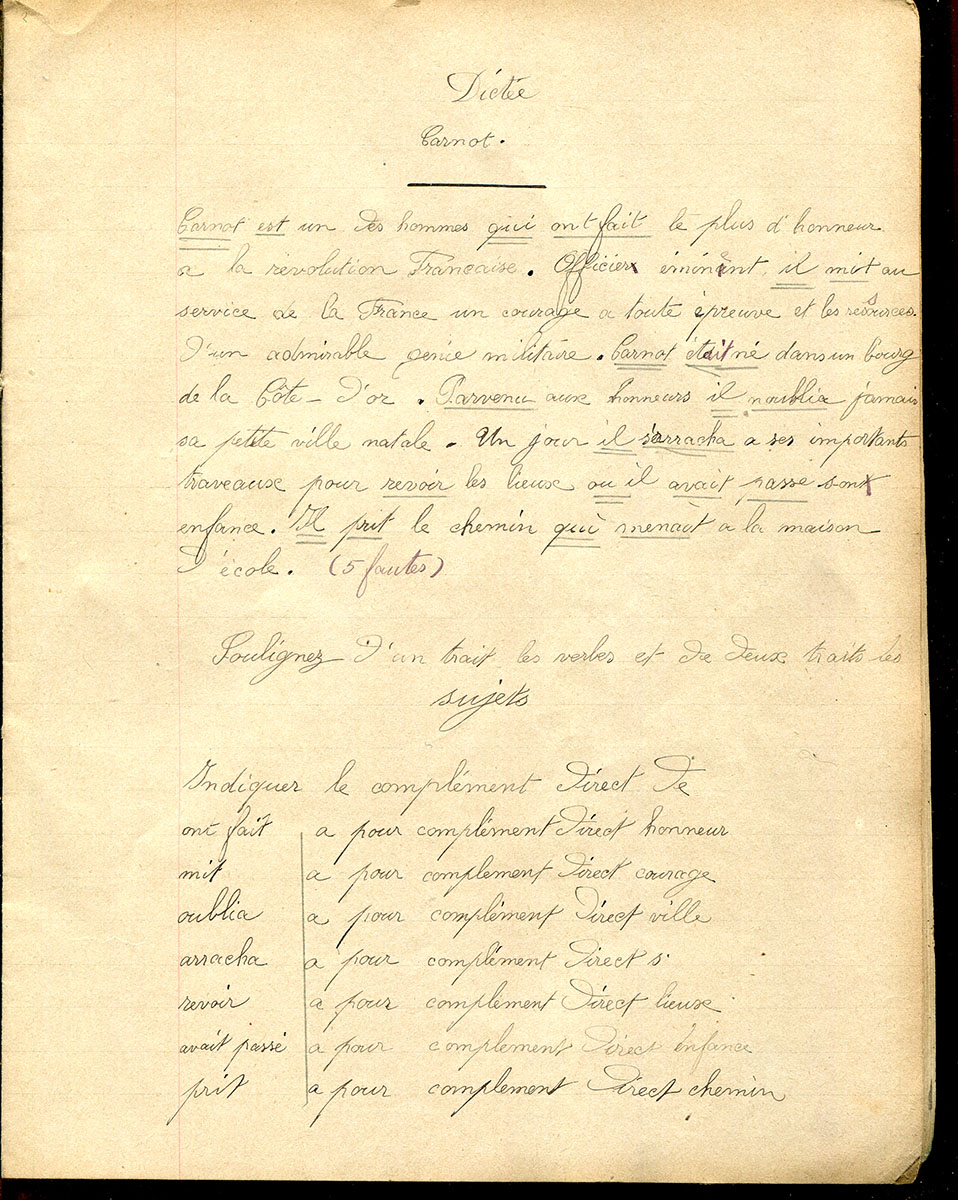 Dictée
Carnot.
Carnot est un des hommes qui ont fait le plus d'honneur
a la révolution Francaise. Officier éminent, il mit au
service de la France un courage a toute épreuve et les ressources
d'un admirable genie militaire. Carnot était né dans un bourg
de la Côte-d'or. Parvenu aux honneurs il noublia jamais
sa petite ville natale. Un jour il s'arracha a ses importants
traveaux pour revoir les lieux ou il avait passe sont
enfance. Il prit le chemin qui menait a la maison
d'école. (5 fautes)
Soulignez d'un trait les verbes et de deux traits les
sujets
Indiquer le complément direct de
ont fait a pour complément direct honneur
mit a pour complement direct courage
oublia a pour complément direct ville
arracha a pour complément direct s'
revoir a pour complément direct lieux
avait passé a pour complement direct enfance
prit a pour complement direct chemin